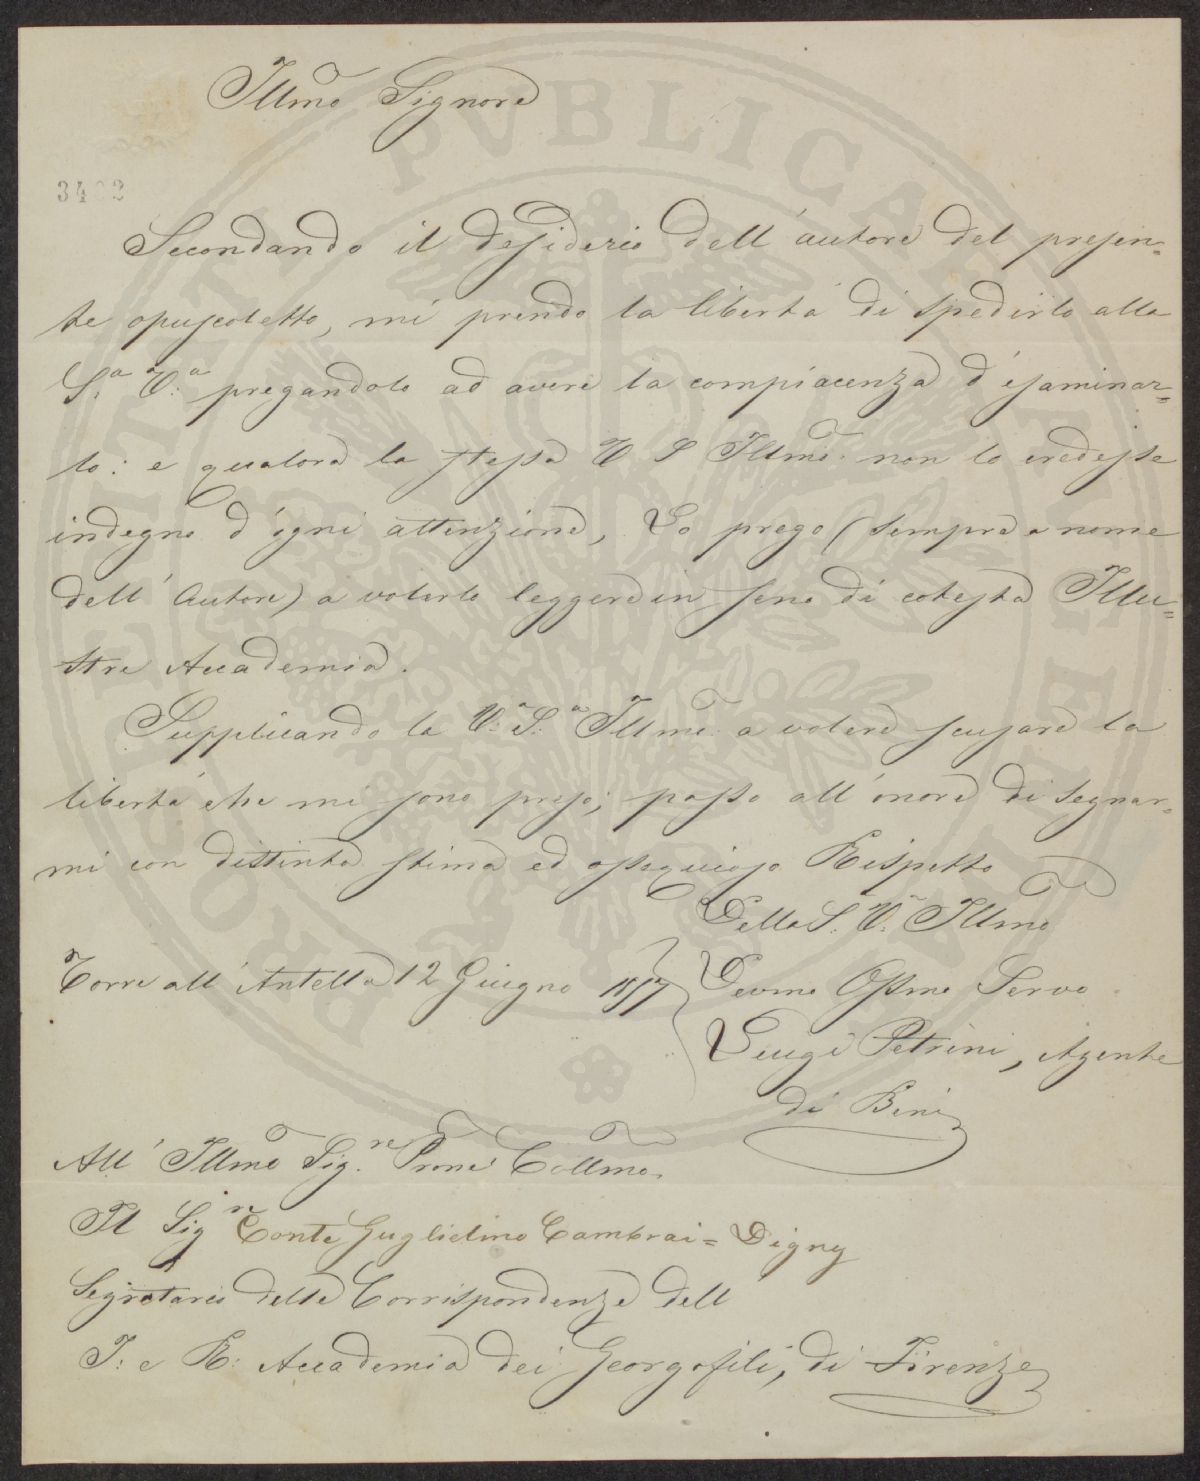 Illmo Signore
3402
Secondando il desiderio dell' autore del presen=
te opuscoletto, mi prendo la libertà di spedirlo alla
S.a V.a pregandola ad avere la compiacenza d' esaminar=
lo: e qualora la stessa V S Illma non lo credesse
indegno d' ogni attenzione, La prego (sempre a nome
dell' Autore) a volerlo leggere in seno di cotesta Illu=
stre Accademia.
Supplicando la V.a S.a Illma a volere scusare la
libertà che mi sono preso; passo all' onore di segnar=
mi con distinta stima ed ossequioso Rispetto
Della S. V. Illma
Torre all' Antella 12 Giugno 1857 Devmo Ossmo Servo
Luigi Petrini, Agente
di Beni
All' Illmo Sig.re Prone Collmo
Il Sig.re Conte Guglielmo Cambrai=Digny
Segretario delle Corrispondenze dell
I: e R: Accademia dei Georgofili, di Firenze